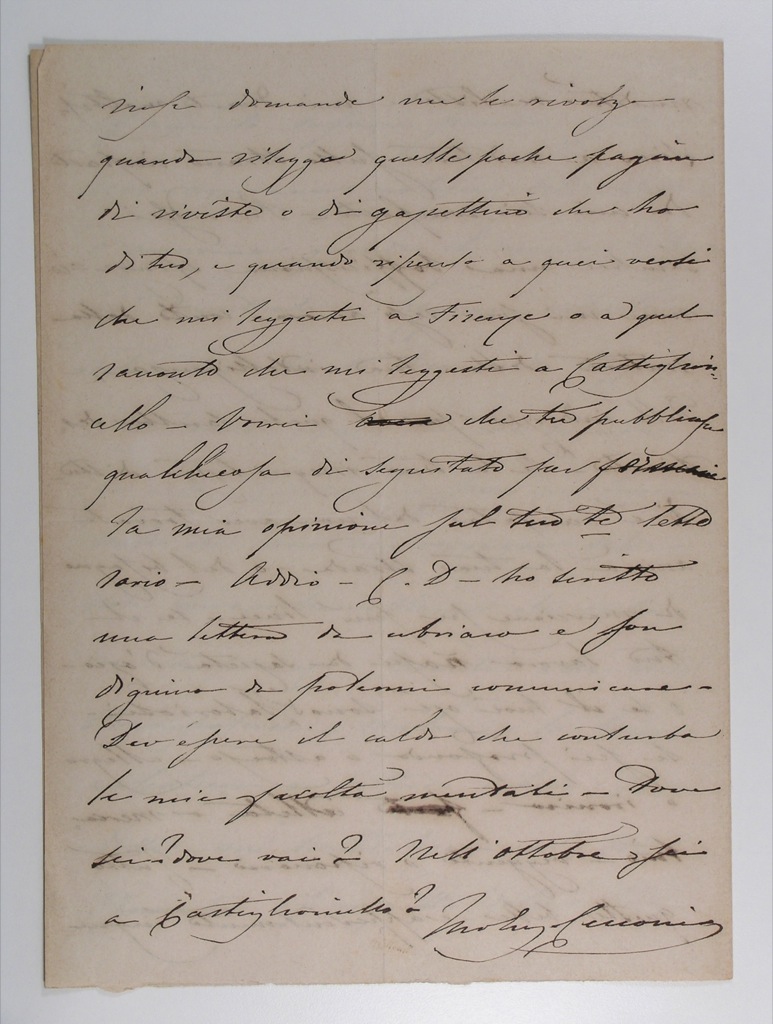 domande me le rivolgo
quando rileggo quelle poche pagine
di riviste o di gazzettino che ho
di tuo, e quando ripenso a quei versi
che mi leggesti a Firenze o a quel
racconto che mi leggesti a Castiglion=
cello – Vorrei che tu pubblicassi
qualchecosa di seguitato per formare
la mia opinione sul tuo te lette
rario – Addio – C. D – ho scritto
una lettera da ubriaco e son
digiuno da potermi comunicare –
Dev'essere il caldo che conturba
le mie facoltà mentali – Dove
sei? dove vai? Nell'ottobre sei
a Castiglioncello?